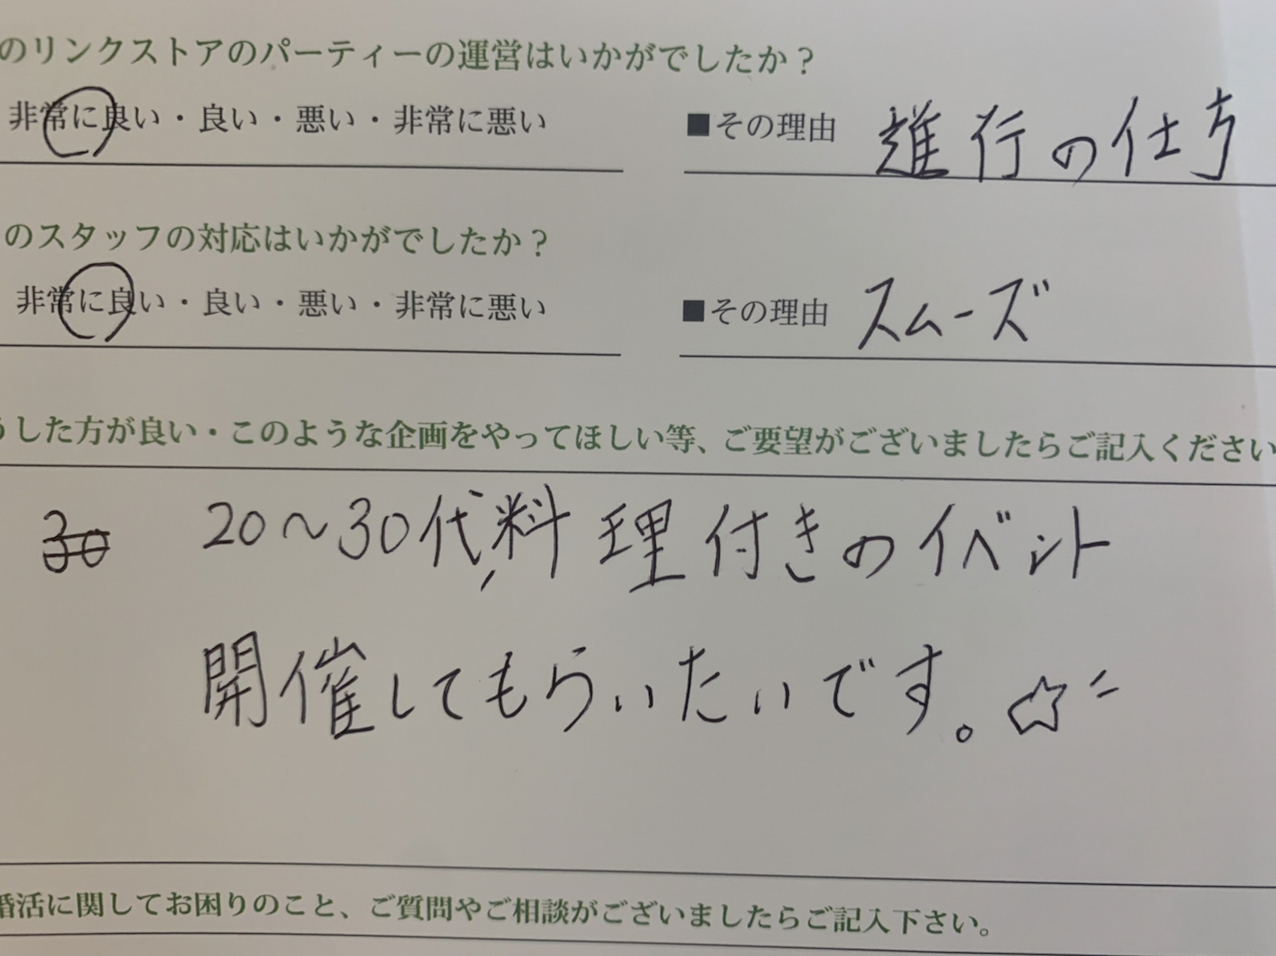 のリンクストアのパーティーの運営はいかがでしたか？
非常に良い・良い・悪い・非常に悪い ■その理由 進行の仕方
のスタッフの対応はいかがでしたか？
非常に良い・良い・悪い・非常に悪い ■その理由 スムーズ
うした方が良い・このような企画をやってほしい等、ご要望がございましたらご記入ください
30 20〜30代,料理付きのイベント
開催してもらいたいです。☆
婚活に関してお困りのこと、ご質問やご相談がございましたらご記入下さい。